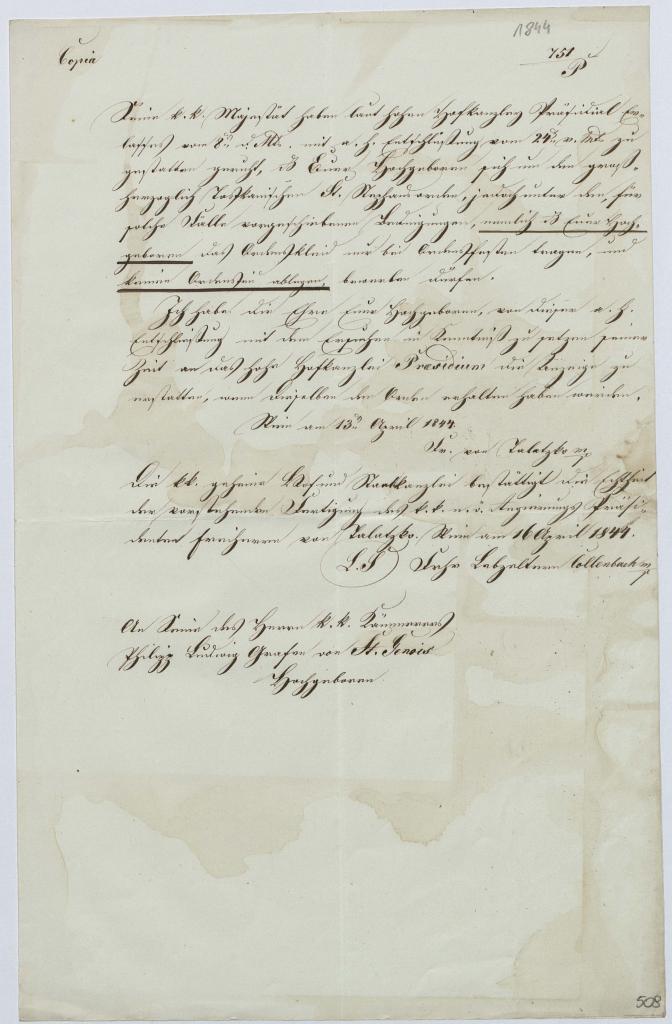 1844
Copia
751
P
Seine k. k. Majestät haben laut hohen Hofkanzley Präsidial Er=
lasses vom 8n. d. Mts. mit a. h. Entschließung vom 24n. v. Mts. zu
gestatten geruht, daß Euer Hochgeboren sich um den groß=
herzoglich Toskanischen St. Stephansorden, jedoch unter den, für
solche Fälle vorgeschriebenen Bedingungen, nemlich daß Euer Hoch=
geboren das Ordenskleid nur bei Ordensfesten tragen, und
keinen Ordenseid ablegen, bewerben dürfen.
Ich habe die Ehre Euer Hochgeboren, von dieser a. h.
Entschließung mit dem Ersuchen in Kenntniß zu setzen seiner
Zeit an das hohe Hofkanzlei Præsidium die Anzeige zu
erstatten, wenn dieselben den Orden erhalten haben werden.
Wien am 13n April 1844.
Fr. von Talatzko mp
Die kk. geheime Hof und Staatskanzlei bestättigt die Echtheit
der vorstehenden Fertigung des k. k. n. ö. Regierungs Präsi=
denten Freiherrn von Talatzko. Wien am 16 April 1844.
L. S Frhr Lebzeltern Collenbach mp
An Seine des Herrn k. k. Kämmerers
Philipp Ludwig Grafen von St. Genois
Hochgeboren.
508